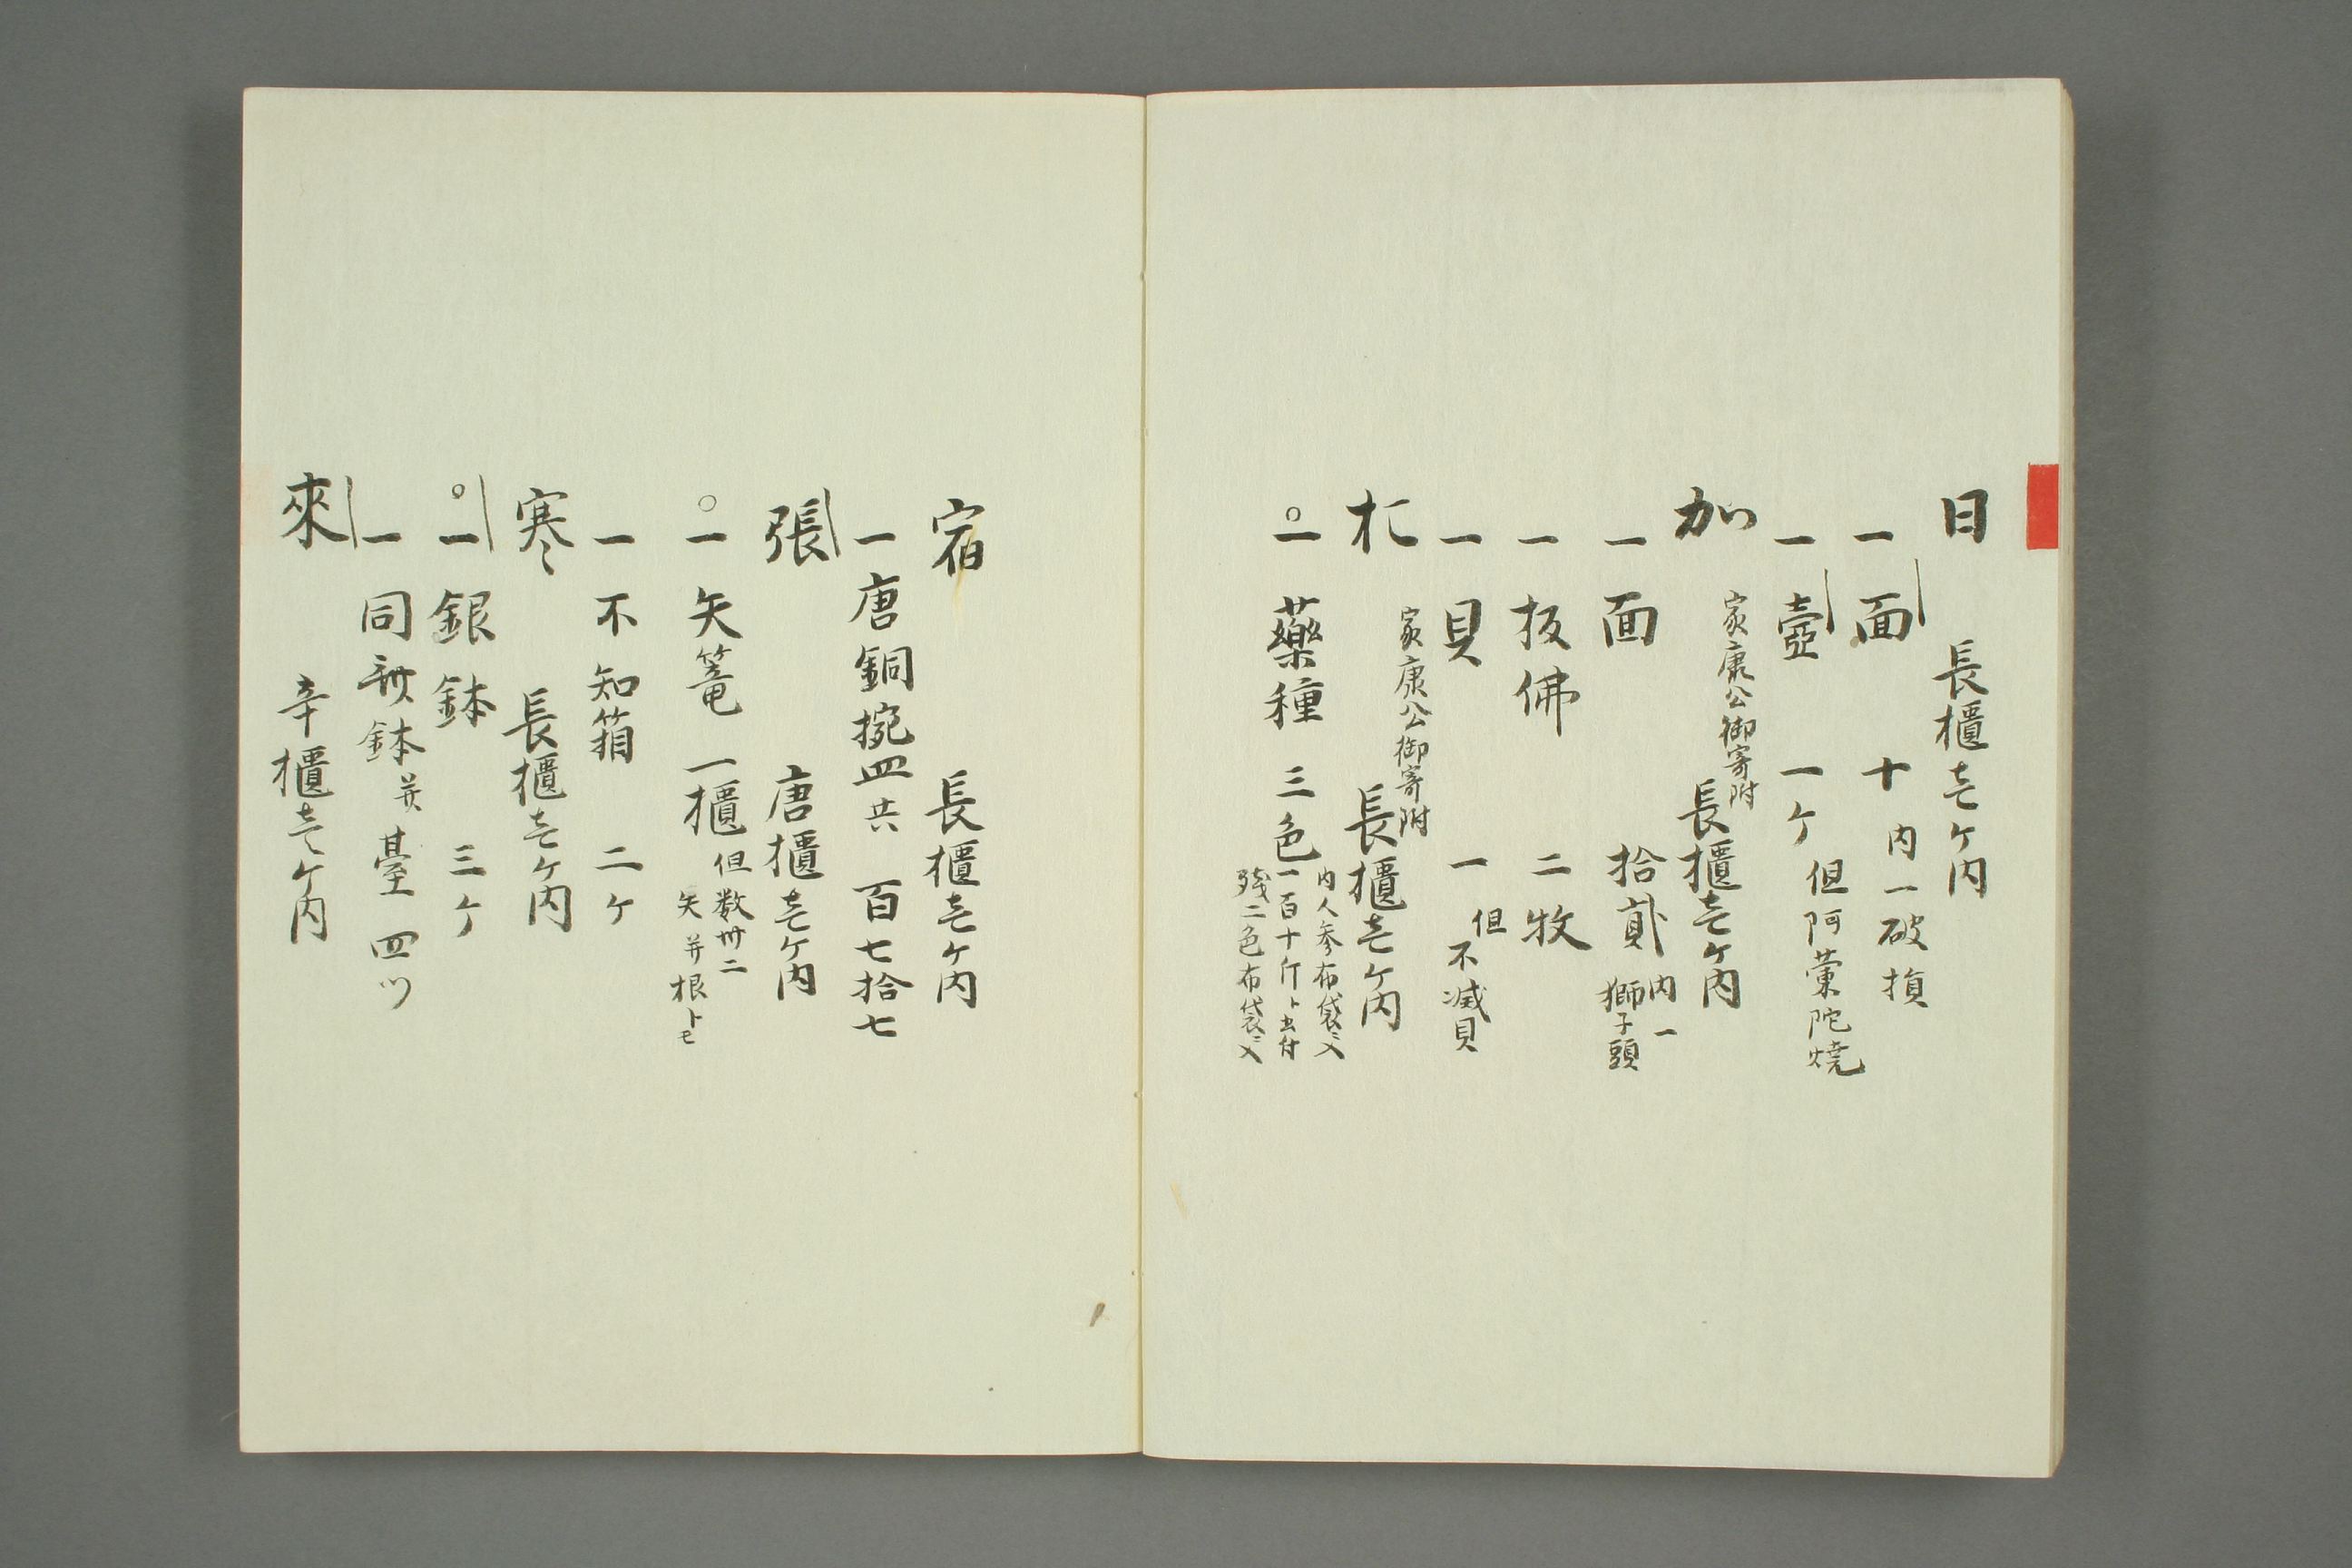 日　長櫃壱ケ内
一面　十　内一破損
一壺　一ケ　但阿蘭陀燒
家康公御寄附
加　長櫃壱ケ内
一面　拾貳　内一獅子頭
一板佛　二牧
一貝　一　但不減貝
家康公御寄附
長櫃壱ケ内
一藥種　三色
内人参布袋ニ入
一百十斤ト書付
残二色布袋ニ入
宿　長櫃壱ケ内
一唐銅捥皿共　百七拾七
張　唐櫃壱ケ内
一矢篭　一櫃　但数卅二
矢并根トモ
一不知箱　二ケ
寒　長櫃壱ケ内
一銀鉢　三ケ
一同鉢并臺　四ツ
來　辛櫃壱ケ内